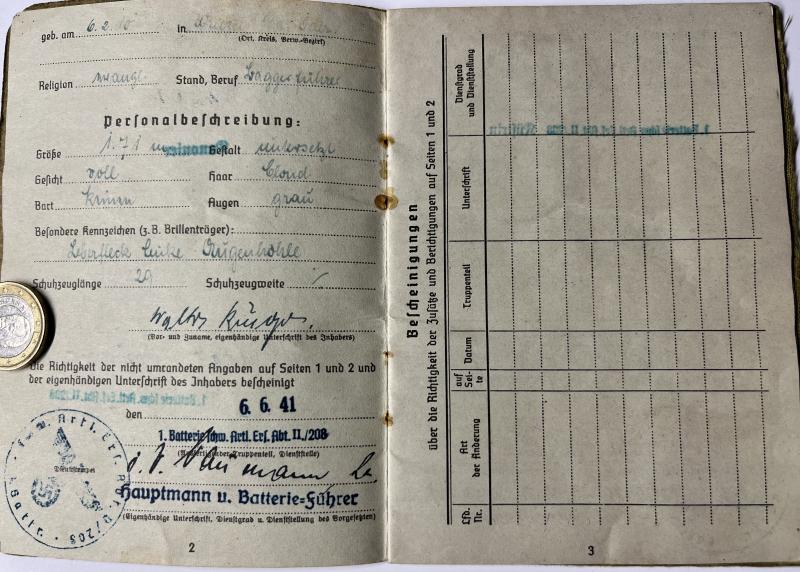 geb. am 6.2.10 in
(Ort, Kreis, Verw.-Bezirk)
Religion evangl. Stand, Beruf Baggerführer
Personalbeschreibung:
Größe 1.71 m Gestalt untersetzt
Gesicht voll Haar blond
Bart keinen Augen grau
Besondere Kennzeichen (z. B. Brillenträger):
Leberfleck linke Augenhöhle
Schuhzeuglänge 29 Schuhzeugweite /
Walter
(Vor- und Zuname, eigenhändige Unterschrift des Inhabers)
Die Richtigkeit der nicht umrandeten Angaben auf Seiten 1 und 2 und
der eigenhändigen Unterschrift des Inhabers bescheinigt
den 6. 6. 41
1. Batterie schw. Artl. Ers. Abt. II./208
(Ausfertigender Truppenteil, Dienststelle)
Dienststempel
Hauptmann u. Batterie-Führer
(Eigenhändige Unterschrift, Dienstgrad u. Dienststellung des Vorgesetzten)
2
Bescheinigungen
über die Richtigkeit der Zusätze und Berichtigungen auf Seiten 1 und 2
Lfd. Nr.
Art der Änderung
auf Seite
Datum
Truppenteil
Unterschrift
Dienstgrad und Dienststellung
3